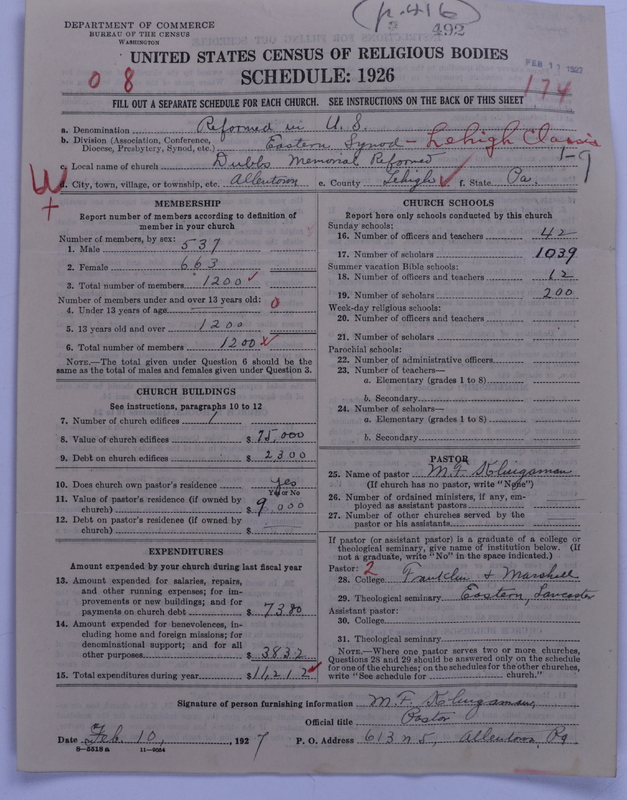 p. 416
DEPARTMENT OF COMMERCE
BUREAU OF THE CENSUS
WASHINGTON
492
UNITED STATES CENSUS OF RELIGIOUS BODIES
FEB 11 1927
0 8
SCHEDULE: 1926
174
FILL OUT A SEPARATE SCHEDULE FOR EACH CHURCH. SEE INSTRUCTIONS ON THE BACK OF THIS SHEET
a. Denomination Reformed in U. S.
b. Division (Association, Conference, Diocese, Presbytery, Synod, etc.) Eastern Synod - Lehigh Classis
1-9
c. Local name of church Dubbs Memorial Reformed
W +
d. City, town, village, or township, etc. Allentown e. County Lehigh f. State Pa.
MEMBERSHIP
Report number of members according to definition of
member in your church
Number of members, by sex:
1. Male 537
2. Female 663
3. Total number of members 1200
Number of members under and over 13 years old: 0
4. Under 13 years of age
5. 13 years old and over 1200
6. Total number of members 1200
NOTE.—The total given under Question 6 should be the
same as the total of males and females given under Question 3.
CHURCH BUILDINGS
See instructions, paragraphs 10 to 12
7. Number of church edifices 1
8. Value of church edifices $ 75,000
9. Debt on church edifices $ 2300
10. Does church own pastor's residence yes
Yes or No
11. Value of pastor's residence (if owned by
church) $ 9,000
12. Debt on pastor's residence (if owned by
church) $
EXPENDITURES
Amount expended by your church during last fiscal year
13. Amount expended for salaries, repairs,
and other running expenses; for im-
provements or new buildings; and for
payments on church debt $ 7380
14. Amount expended for benevolences, in-
cluding home and foreign missions; for
denominational support; and for all
other purposes $ 3832
15. Total expenditures during year $ 11,212
CHURCH SCHOOLS
Report here only schools conducted by this church
Sunday schools:
16. Number of officers and teachers 42
17. Number of scholars 1039
Summer vacation Bible schools:
18. Number of officers and teachers 12
19. Number of scholars 200
Week-day religious schools:
20. Number of officers and teachers
21. Number of scholars
Parochial schools:
22. Number of administrative officers
23. Number of teachers—
a. Elementary (grades 1 to 8)
b. Secondary
24. Number of scholars—
a. Elementary (grades 1 to 8)
b. Secondary
PASTOR
25. Name of pastor M. F. Klingaman
(If church has no pastor, write "None")
26. Number of ordained ministers, if any, em-
ployed as assistant pastors
27. Number of other churches served by the
pastor or his assistants
If pastor (or assistant pastor) is a graduate of a college or
theological seminary, give name of institution below. (If
not a graduate, write "No" in the space indicated.)
Pastor: 2
28. College Franklin & Marshall
29. Theological seminary Eastern, Lancaster
Assistant pastor:
30. College
31. Theological seminary
NOTE.—Where one pastor serves two or more churches,
Questions 28 and 29 should be answered only on the schedule
for one of the churches; on the schedules for the other churches,
write "See schedule for church."
Signature of person furnishing information M. F. Klingaman,
Official title Pastor
Date Feb. 10, 1927 P. O. Address 613 N 5, Allentown, Pa
8-5518a 11-9084